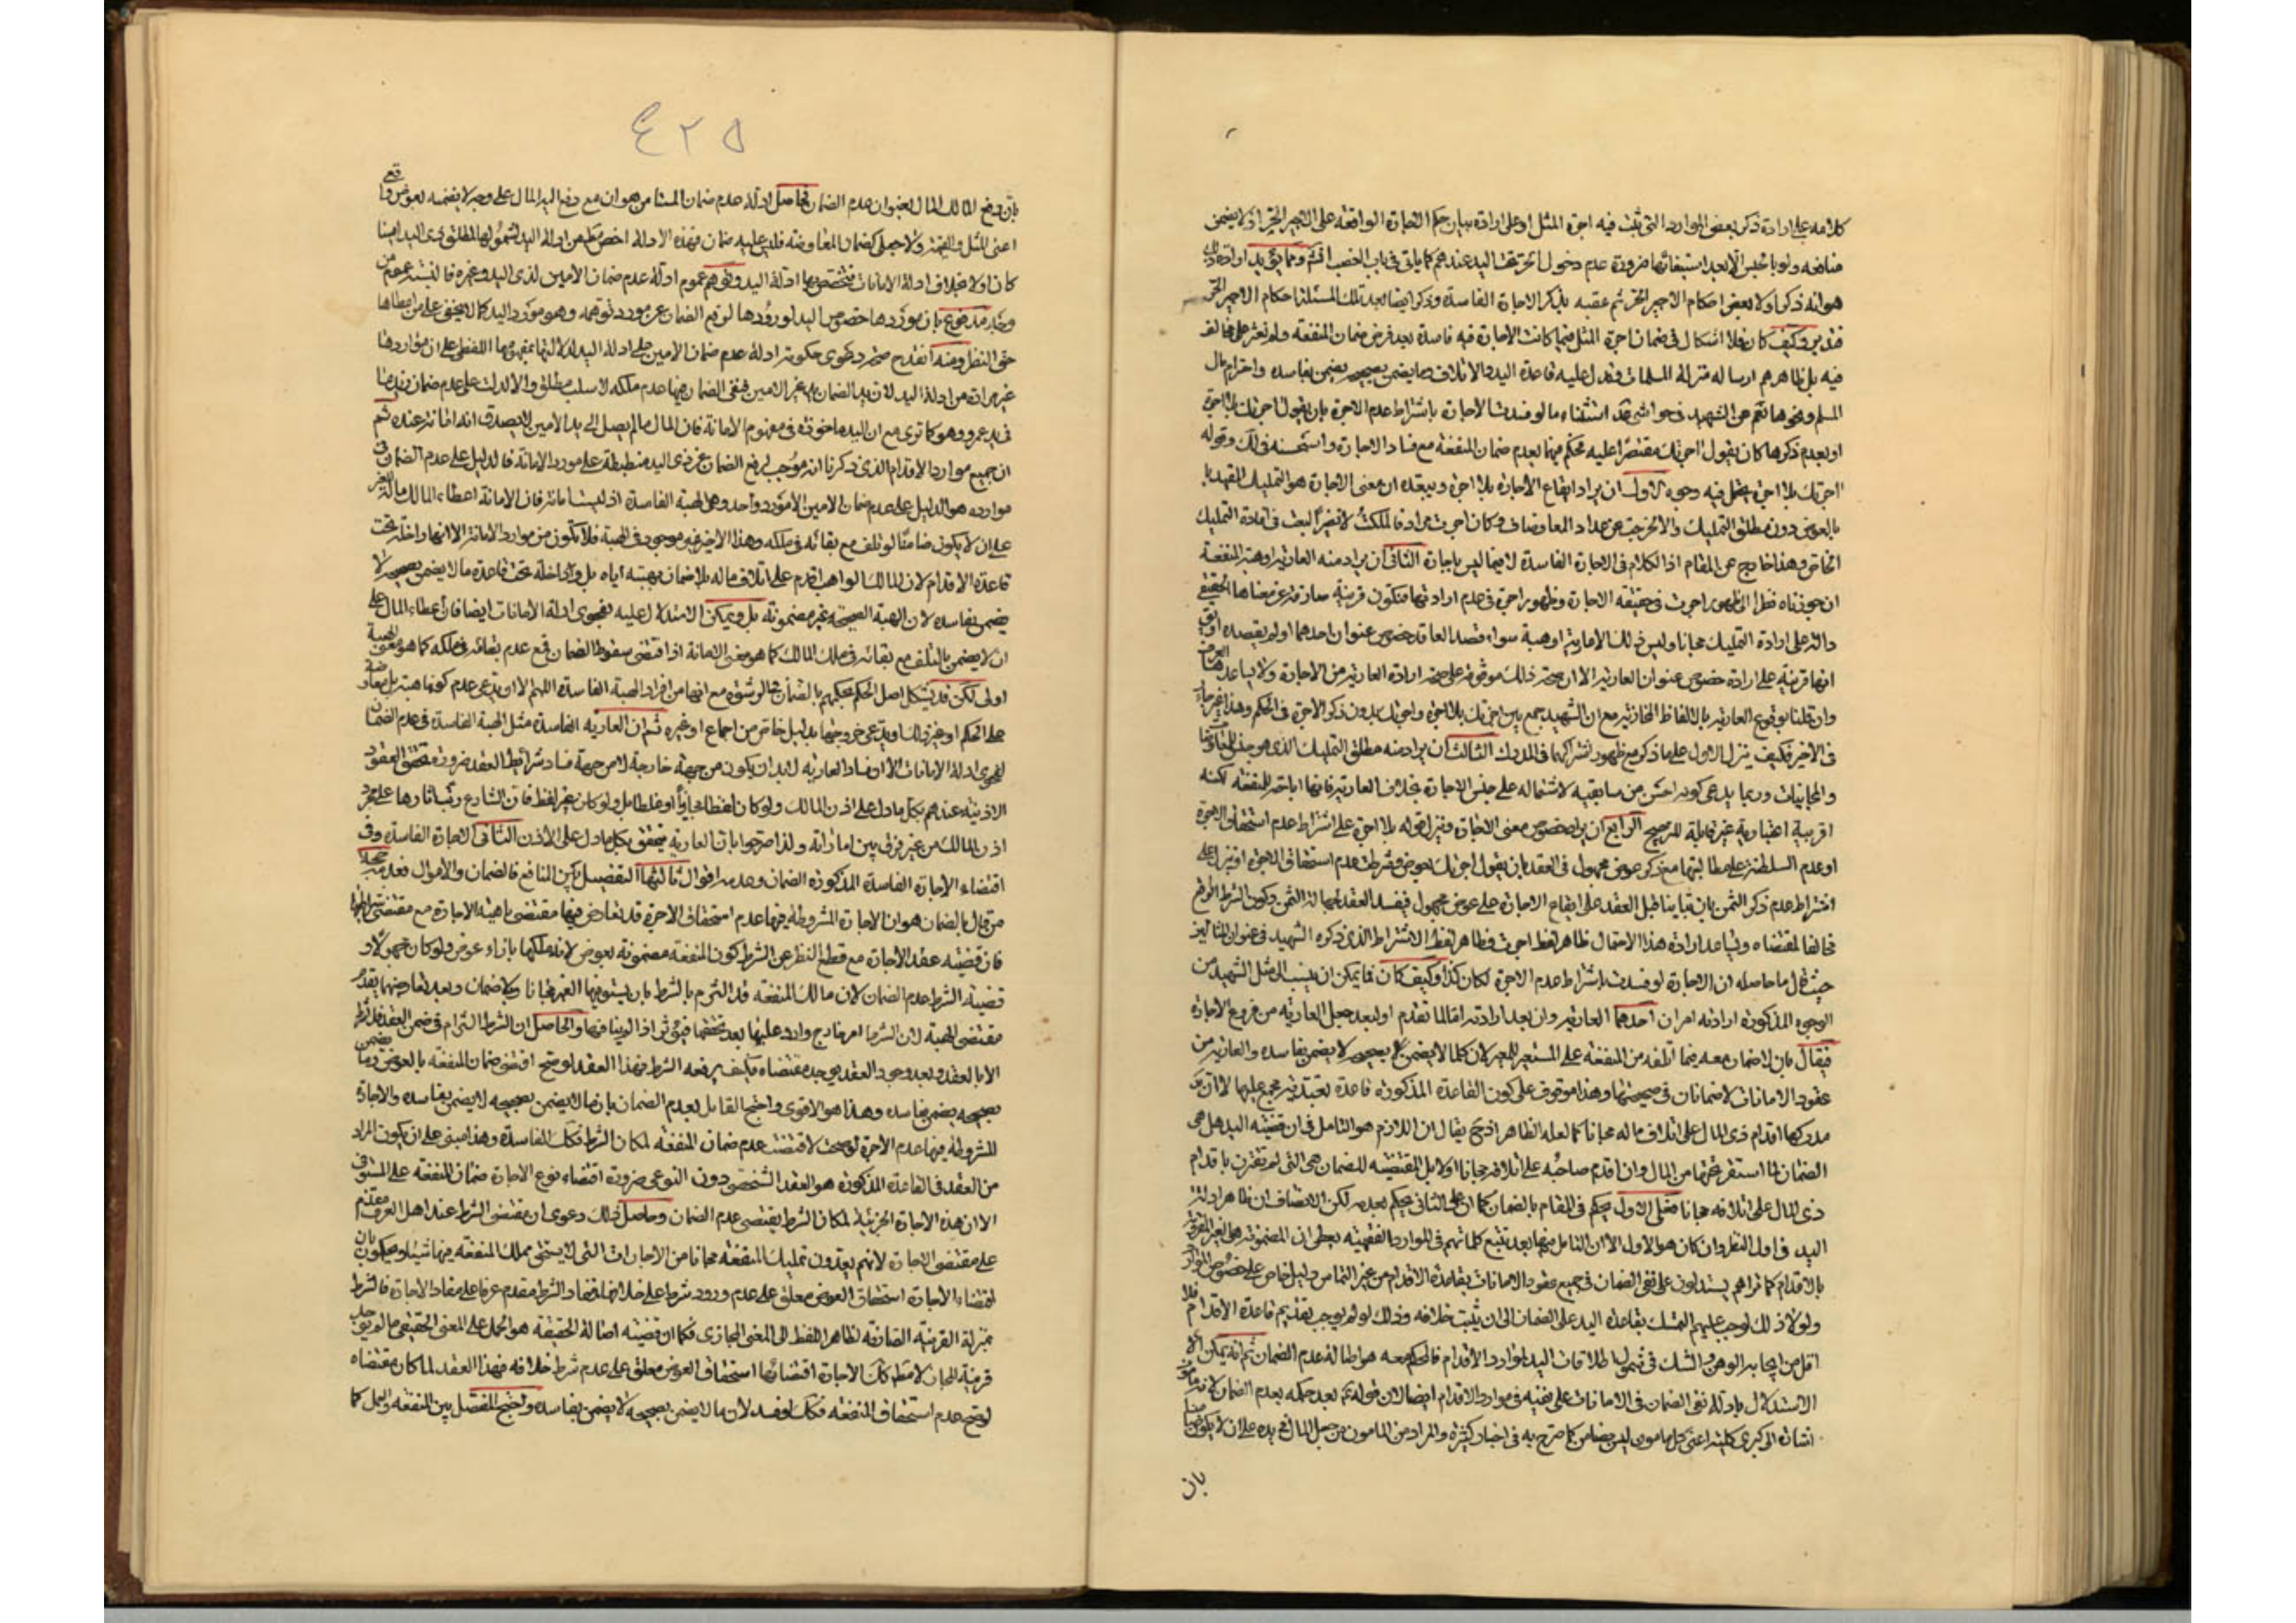 كلامه على ارادة ذكر بعض الموارد التى يثبت فيه اجرة المثل او على ارادة بيان حكم الاجارة الواقعة على الاجير الحر اذ لا يضمن
منافعه ولو بالحبس الا بعد استيفائها ضرورة عدم دخول الحر تحت اليد عندهم كما ياتى فى باب الغصب
هو انه ذكر اولا بعض احكام الاجير الحر ثم عقبه بذكر الاجارة الفاسدة وذكر ايضا بعد تلك المسئلة احكام الاجير الحر
فتدبر وكيف كان فلا اشكال فى ضمان اجرة المثل فيما كانت الاجارة فيه فاسدة بعد فرض ضمان المنفعة ولم نعثر على مخالف
فيه بل ظاهرهم ارساله ارسال المسلمات ويدل عليه قاعدة اليد والاتلاف وما يضمن بصحيحه يضمن بفاسده واحترام مال
المسلم ونحوها نعم عن الشهيد فى حواشى عد استثناء ما لو فسدت الاجارة باشتراط عدم الاجرة بان يقول اجرتك بلا اجرة
او بعدم ذكرها كان يقول اجرتك مقتصرا عليه فحكم فيهما بعدم ضمان المنفعة مع فساد الاجارة واستحسنه فى لك وقوله
اجرتك بلا اجرة يحتمل فيه وجوه الاول ان يراد ايقاع الاجارة بلا اجرة ويبعده ان معنى الاجارة هو التمليك المقيد
بالعوض دون مطلق التمليك والا لخرجت عن عداد المعاوضات وكان اجرت مرادفا لملكت لا نصّا لبعث فى افادة التمليك
الخاص وهذا خارج عن المقام اذ الكلام فى الاجارة الفاسدة لا فيما ليس باجارة الثانى ان يراد منه العارية او هبة المنفعة
ان جوزناه نظرا الى ظهور اجرت فى حقيقة الاجارة وظهور بلا اجرة فى عدم ارادتها فتكون قرينة صارفة عن معناها الحقيقى
دالة على ارادة التمليك مجانا وليس ذلك الا عارية او هبة سواء قصد العاقد خصوص عنوان احدهما او لم يقصده
انها قرينة على ارادة خصوص عنوان العارية الا ان صحة ذلك موقوفة على صحة ارادة العارية من الاجارة ولا يساعدها
وان قلنا بوقوع العارية بالالفاظ المجازية مع ان الشهيد جمع بين اجرتك بلا اجرة واجرتك بدون ذكر الاجرة فى الحكم وهذا غير جار
فى الاخير فكيف ينزل الاول على ما ذكر مع ظهور اشتراكهما فى المدرك الثالث ان يراد منه مطلق التمليك الذى هو جنس
والمجانيات وربما يدعى كونه احسن من سابقيه لاشتماله على جنس الاجارة بخلاف العارية فانها اباحة المنفعة لكنه
اقربية اعتبارية غير قابلة للترجيح الرابع ان يراد خصوص معنى الاجارة وينزل قوله بلا اجرة على اشتراط عدم استحقاق الاجرة
او عدم السلطنة على مطالبتها مع ذكر عوض مجهول فى العقد بان يقول اجرتك بعوض وشرطت عدم استحقاق الاجرة او ينزل على
اشتراط عدم ذكر الثمن بان تبانيا قبل العقد على ايقاع الاجارة على عوض مجهول فيفسد العقد لجهالة الثمن وكون الشرط الواقع
مخالفا لمقتضاه ويساعد ارادة هذا الاحتمال ظاهر لفظ اجرت وظاهر لفظ الاشتراط الذى ذكره الشهيد فى عنوان المسئلة
حيث قال ما حاصله ان الاجارة لو فسدت باشتراط عدم الاجرة لكان كذا وكيف كان فما يمكن ان ينسب الى مثل الشهيد من
الوجوه المذكورة ارادته امران احدهما العارية وان بعد ارادته اما لما تقدم او لبعد جعل العارية من فروع الاجارة
فيقال بان لا ضمان معه فيما اتلفه من المنفعة على المستعير للمعير لان كلما لا يضمن بصحيحه لا يضمن بفاسده والعارية من
عقود الامانات لا ضمانات فى صحيحتها وهذا موقوف على كون القاعدة المذكورة قاعدة تعبدية مجمع عليها
مدركها اقدام ذى المال على اتلاف ماله مجانا كما لعله الظاهر اذ ح يقال ان اللازم هو التامل فى ان قضية اليد هل هى
الضمان لما استقر تحتها من المال وان اقدم صاحبه على اتلافه مجانا اولا بل المقتضية للضمان هى التى لم تقترن باقدام
ذى المال على اتلافه مجانا فعلى الاول يحكم فى المقام بالضمان كما ان على الثانى يحكم بعدمه لكن الانصاف ان ظاهر ادلة
اليد فى اول النظر وان كان هو الاول الا ان التامل فيها بعد تتبع كلماتهم فى الموارد الفقهية يعطى ان المضمونة هى الغير المقرونة
بالاقدام كما تراهم يستدلون على نفى الضمان فى جميع عقود الامانات بقاعدة الاقدام من غير التماس دليل خاص على خصوص الموارد
ولولا ذلك لوجب عليهم التمسك بقاعدة اليد على الضمان الى ان يثبت خلافه وذلك لو لم يوجب تقديم قاعدة الاقدام فلا
اقل من ايجابه الوهن والشك فى شمول اطلاقات اليد لموارد الاقدام فالحكم معه هو اصالة عدم الضمان ثم انه يمكن
الاستدلال بادلة نفى الضمان فى الامانات على نفيه فى موارد الاقدام ايضا لان قوله بعد حكمه بعدم الضمان لانه مأمون
اشارة الى كبرى كلية اعنى كل مامون ليس بضامن كما صرح به فى اخبار كثيرة والمراد من المامون من جعل المال فى يده على ان لا يكون ضامنا
بان
٤٢٥
بان دفع المالك المال بعنوان عدم الضمان فحاصل ادلة عدم ضمان المستامن هو ان مع دفع اليه المال على وجه لا يضمنه بعوض واقعى
اعنى المثل والقيمة ولا جعلى كضمان المعاوضة فليس عليه ضمان فهذه الادلة اخص من ادلة اليد لشمولها لمطلق ذى اليد امينا
كان اولا بخلاف ادلة الامانات فتختص بها ادلة اليد وتوهم عموم ادلة عدم ضمان الامين لذى اليد وغيره فالنسبة عموم من
وجه مدفوع بان موردها خصوص اليد لورودها لدفع الضمان عن مورد توهمه وهو مورد اليد كما لا يخفى على من اعطاها
حق النظر ومنه انقدح صحة دعوى حكومة ادلة عدم ضمان الامين على ادلة اليد لدلالتها بمفهومها اللفظى على ان مواردها
غير مرادة من ادلة اليد لان يد الضمان يد غير الامين فنفى الضمان
فى يد عمرو وهو كما ترى مع ان اليد ماخوذة فى مفهوم الامانة فان المال ما لم يصل الى يد الامين لا يصدق انه امانة عنده ثم
ان جميع موارد الاقدام الذى ذكرنا انه موجب لرفع الضمان عن ذى اليد منطبقة على مورد الامانة فالدليل على عدم الضمان فى
موارده هو الدليل على عدم ضمان الامين الا مورد واحد وهى الهبة الفاسدة اذ ليست امانة فان الامانة اعطاء المالك ماله للغير
على ان لا يكون ضامنا لو تلف مع بقائه فى ملكه وهذا الاخير غير موجود فى الهبة فلا تكون من موارد الامانة الا انها داخلة تحت
قاعدة الاقدام لان المالك الواهب اقدم على اتلاف ماله بلا ضمان بهبته اياه بل والداخلة تحت قاعدة ما لا يضمن بصحيحه لا
يضمن بفاسده لان الهبة الصحيحة غير مضمونة بل ويمكن الاستدلال عليه بفحوى ادلة الامانات ايضا فان اعطاء المال على
ان لا يضمن بالتلف مع بقائه فى ملك المالك كما هو معنى الامانة اذا اقتضى سقوط الضمان فمع عدم بقائه فى ملكه كما هو معنى الهبة
اولى لكن قد يشكل اصل الحكم بحكمهم بالضمان فى الرشوة مع انها من افراد الهبة الفاسدة اللهم الا ان يدعى عدم كونها هبة بل معاوضة
على الحكم او غير ذلك او يدعى خروجها بدليل خاص من اجماع او غيره ثم ان العارية الفاسدة مثل الهبة الفاسدة فى عدم الضمان
لفحوى ادلة الامانات الا ان فساد العارية لابد ان يكون من جهة خارجة لا من جهة فساد شرائط العقد ضرورة تحقق العقود
الاذنية عندهم بكل ما دل على اذن المالك ولو كان لفظا مجازيا او غلطا بل ولو كان بغير لفظ فان الشارع رتب اثارها على مجرد
اذن المالك من غير فرق بين اماراته ولذا صرحوا بان العارية يتحقق بكل ما دل على الاذن الثانى الاجارة الفاسدة وفى
اقتضاء الاجارة الفاسدة المذكورة الضمان وعدمه اقوال ثالثها التفصيل بين المنافع فالضمان والاموال فعدمه حجة
من قال بالضمان هو ان الاجارة المشروطة فيها عدم استحقاق الاجرة قد تعارض فيها مقتضى ماهية الاجارة مع مقتضى شرطها
فان قضية عقد الاجارة مع قطع النظر عن الشرط كون المنفعة مضمونة بعوض لانه ملكها بازاء عوض ولو كان مجهولا و
قضية الشرط عدم الضمان لان مالك المنفعة قد التزم بالشرط بان يستوفيها الغير مجانا وبلا ضمان وبعد تعارضهما يقدم
مقتضى الهبة لان الشرط امر خارج وارد عليها بعد تحققها والحاصل ان الشرط التزام فى ضمن العقد
الا بالعقد وبعد وجود العقد يوجد مقتضاه فكيف يرفعه الشرط فهذا العقد لو صح اقتضى ضمان المنفعة بالعوض وما يضمن
بصحيحه يضمن بفاسده وهذا هو الاقوى واحتج القائل بعدم الضمان بان ما لا يضمن بصحيحه لا يضمن بفاسده والاجارة
المشروطة فيها عدم الاجرة لو صحت لاقتضت عدم ضمان المنفعة لمكان الشرط فكذلك الفاسدة وهذا مبنى على ان يكون المراد
من العقد فى القاعدة المذكورة هو العقد الشخصى دون النوعى ضرورة اقتضاء نوع الاجارة ضمان المنفعة على المستوفى
الا ان هذه الاجارة الجزئية لمكان الشرط يقتضى عدم الضمان وحاصل ذلك دعوى ان مقتضى الشرط عند اهل العرف مقدم
على مقتضى الاجارة لانهم يعدون تمليك المنفعة مجانا من الاجارات التى لا يستحق مملك المنفعة فيها شيئا ويحكمون بان
اقتضاء الاجارة استحقاق العوض معلق على عدم ورود شرط على خلافها فمفاد الشرط مقدم عرفا على مفاد الاجارة فالشرط
بمنزلة القرينة الصارفة لظاهر اللفظ الى المعنى المجازى فكما ان قضية اصالة الحقيقة هو الحمل على المعنى الحقيقى ما لم يوجد
قرينة المجاز لا مطلقا كذلك الاجارة اقتضائها استحقاق العوض معلق على عدم شرط خلافه فهذا العقد لما كان مقتضاه
لو صح عدم استحقاق المنفعة فكذلك لو فسد لان ما لا يضمن بصحيحه لا يضمن بفاسده واحتج المفصل بين المنفعة والعمل كما